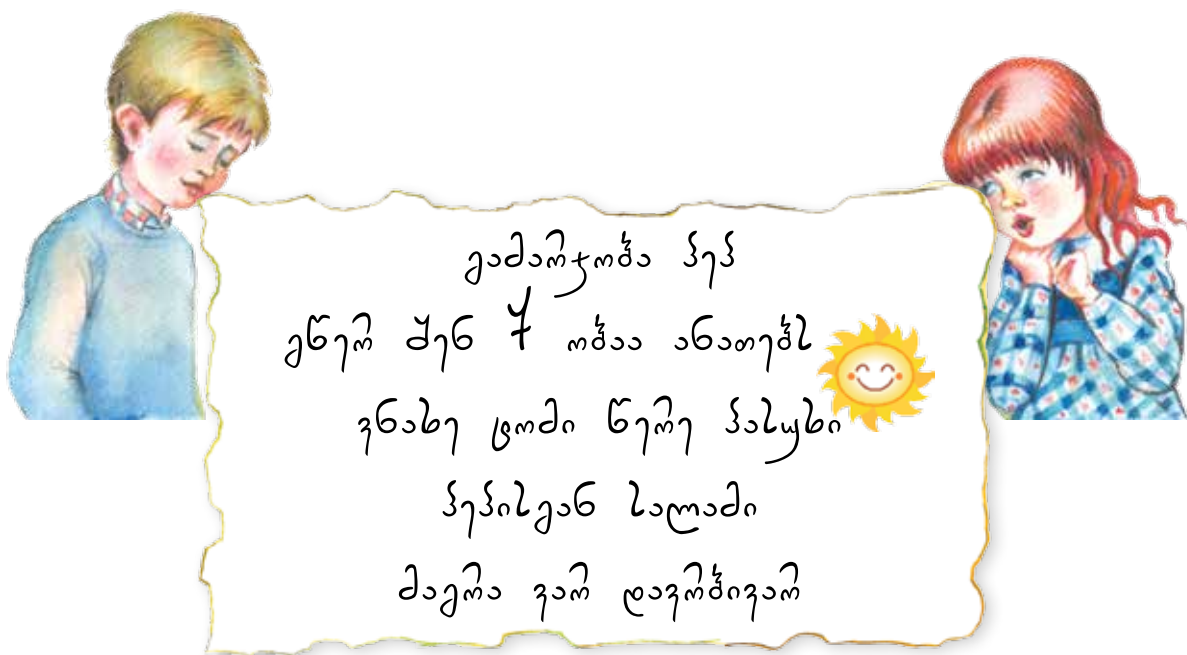 გამარჯობა პეპ
გწერ შენ 7 ობაა ანათებს
ვნახე ტომი წერე პასუხი
პეპისგან სალამი
მაგრა ვარ დავრბივარ